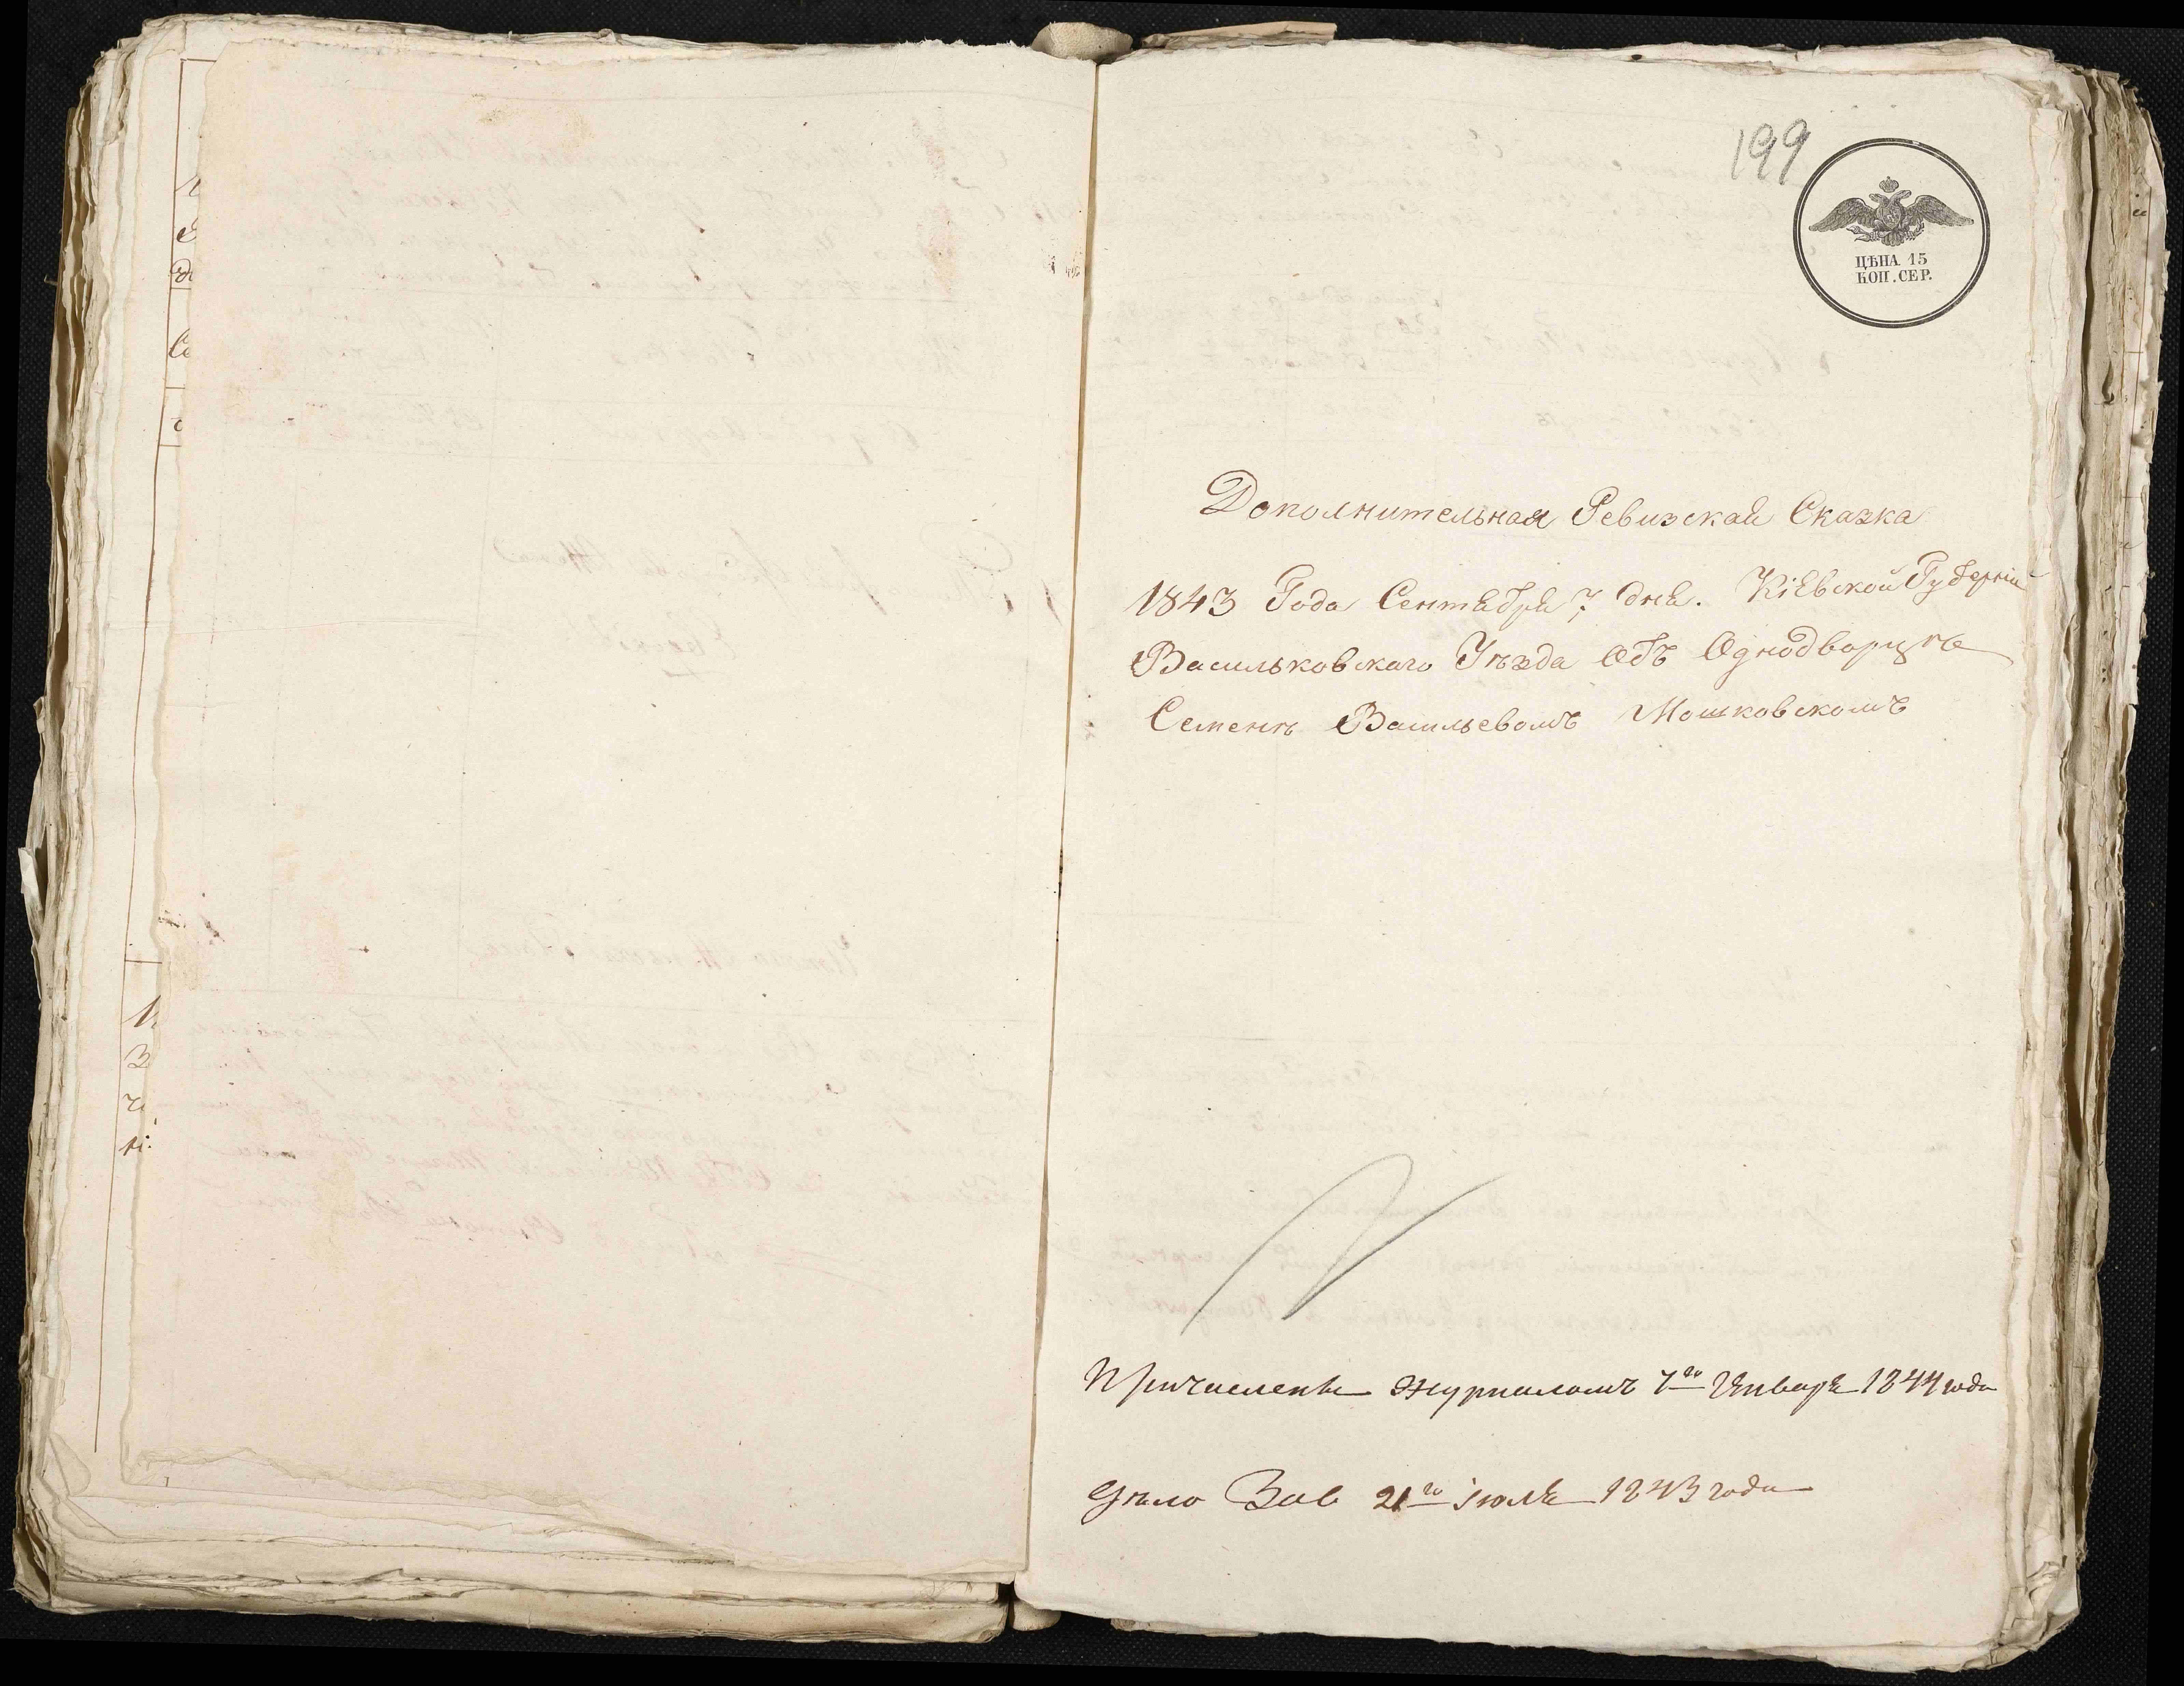 199
ЦѢНА 15
КОП. СЕР.
Дополнительная Ревизская Сказка
1843 Года Сентября 7 дня. Кіевской Губерніи
Васильковскаго Уѣзда Объ Однодворцѣ
Семенѣ Васильевомъ Мошковскомъ
Причислены журналомъ 7го Января 1844 года
Дѣло 21го іюля 1843 года